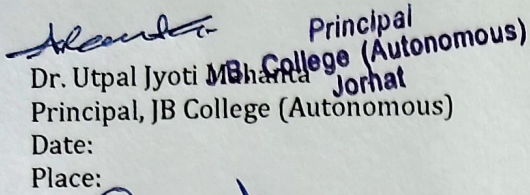 Principal
JB College (Autonomous)
Jorhat
Dr. Utpal Jyoti Mahanta
Principal, JB College (Autonomous)
Date:
Place: